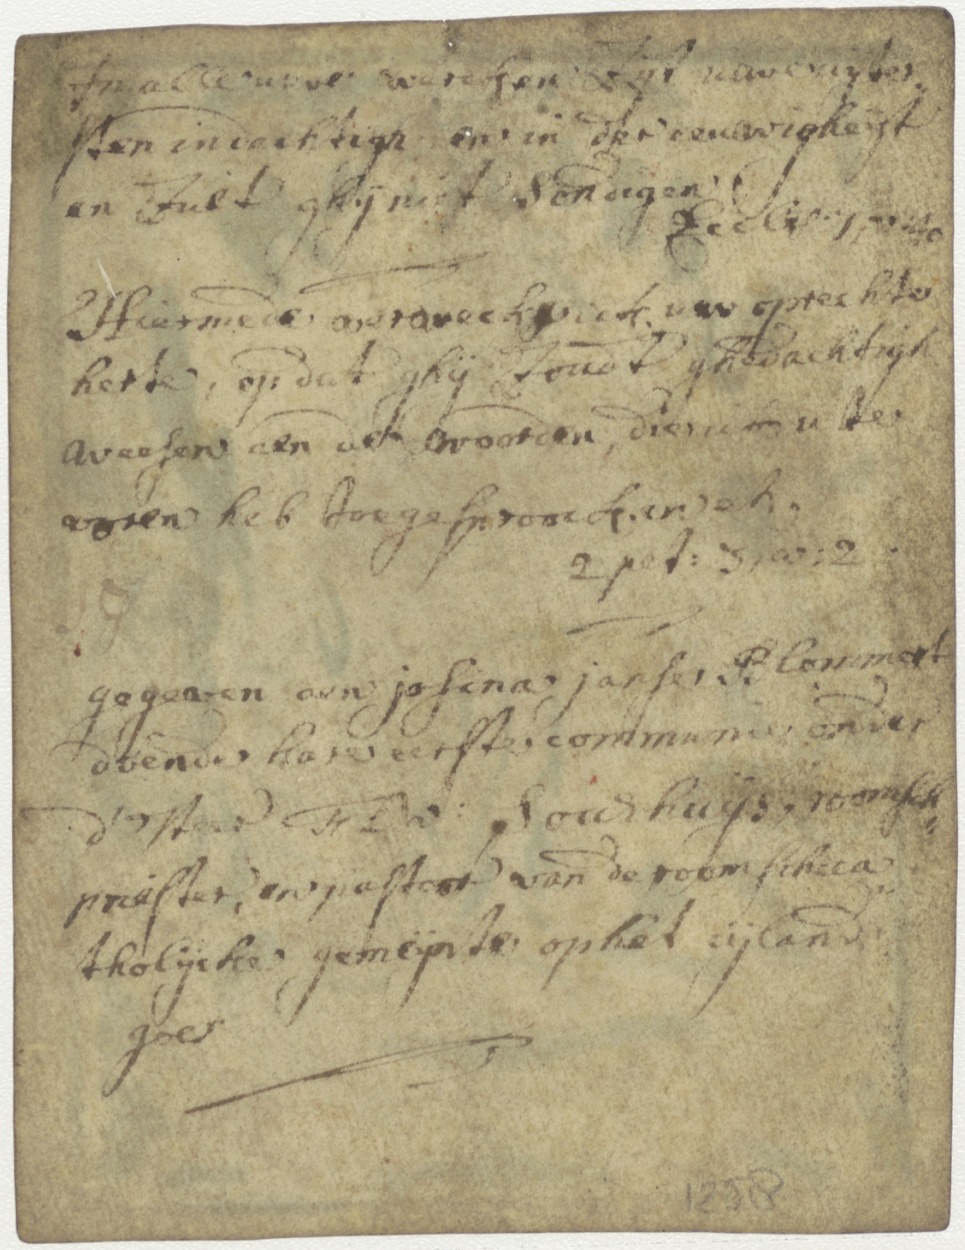 In alle uwe wercken zyt uwe uyter-
sten indachtigh en in der eeuwigheyt
en zult ghij niet sondigen
Eccli: 7,
Hiermede verweck ick uw oprechte
herte, op dat ghij soudt ghedachtigh
weesen aen de woorden, die ick u te
voren heb toegesproocken etc.
2 pet: 3, v: 2
gegeven aen josina janse Blommert
doende hare eerste communie onder
d'Heer Soudhuijs, roomsch
priester, en pastoor van de roomsche ca
tholijcke gemeijnte op het eijland
goes
1258